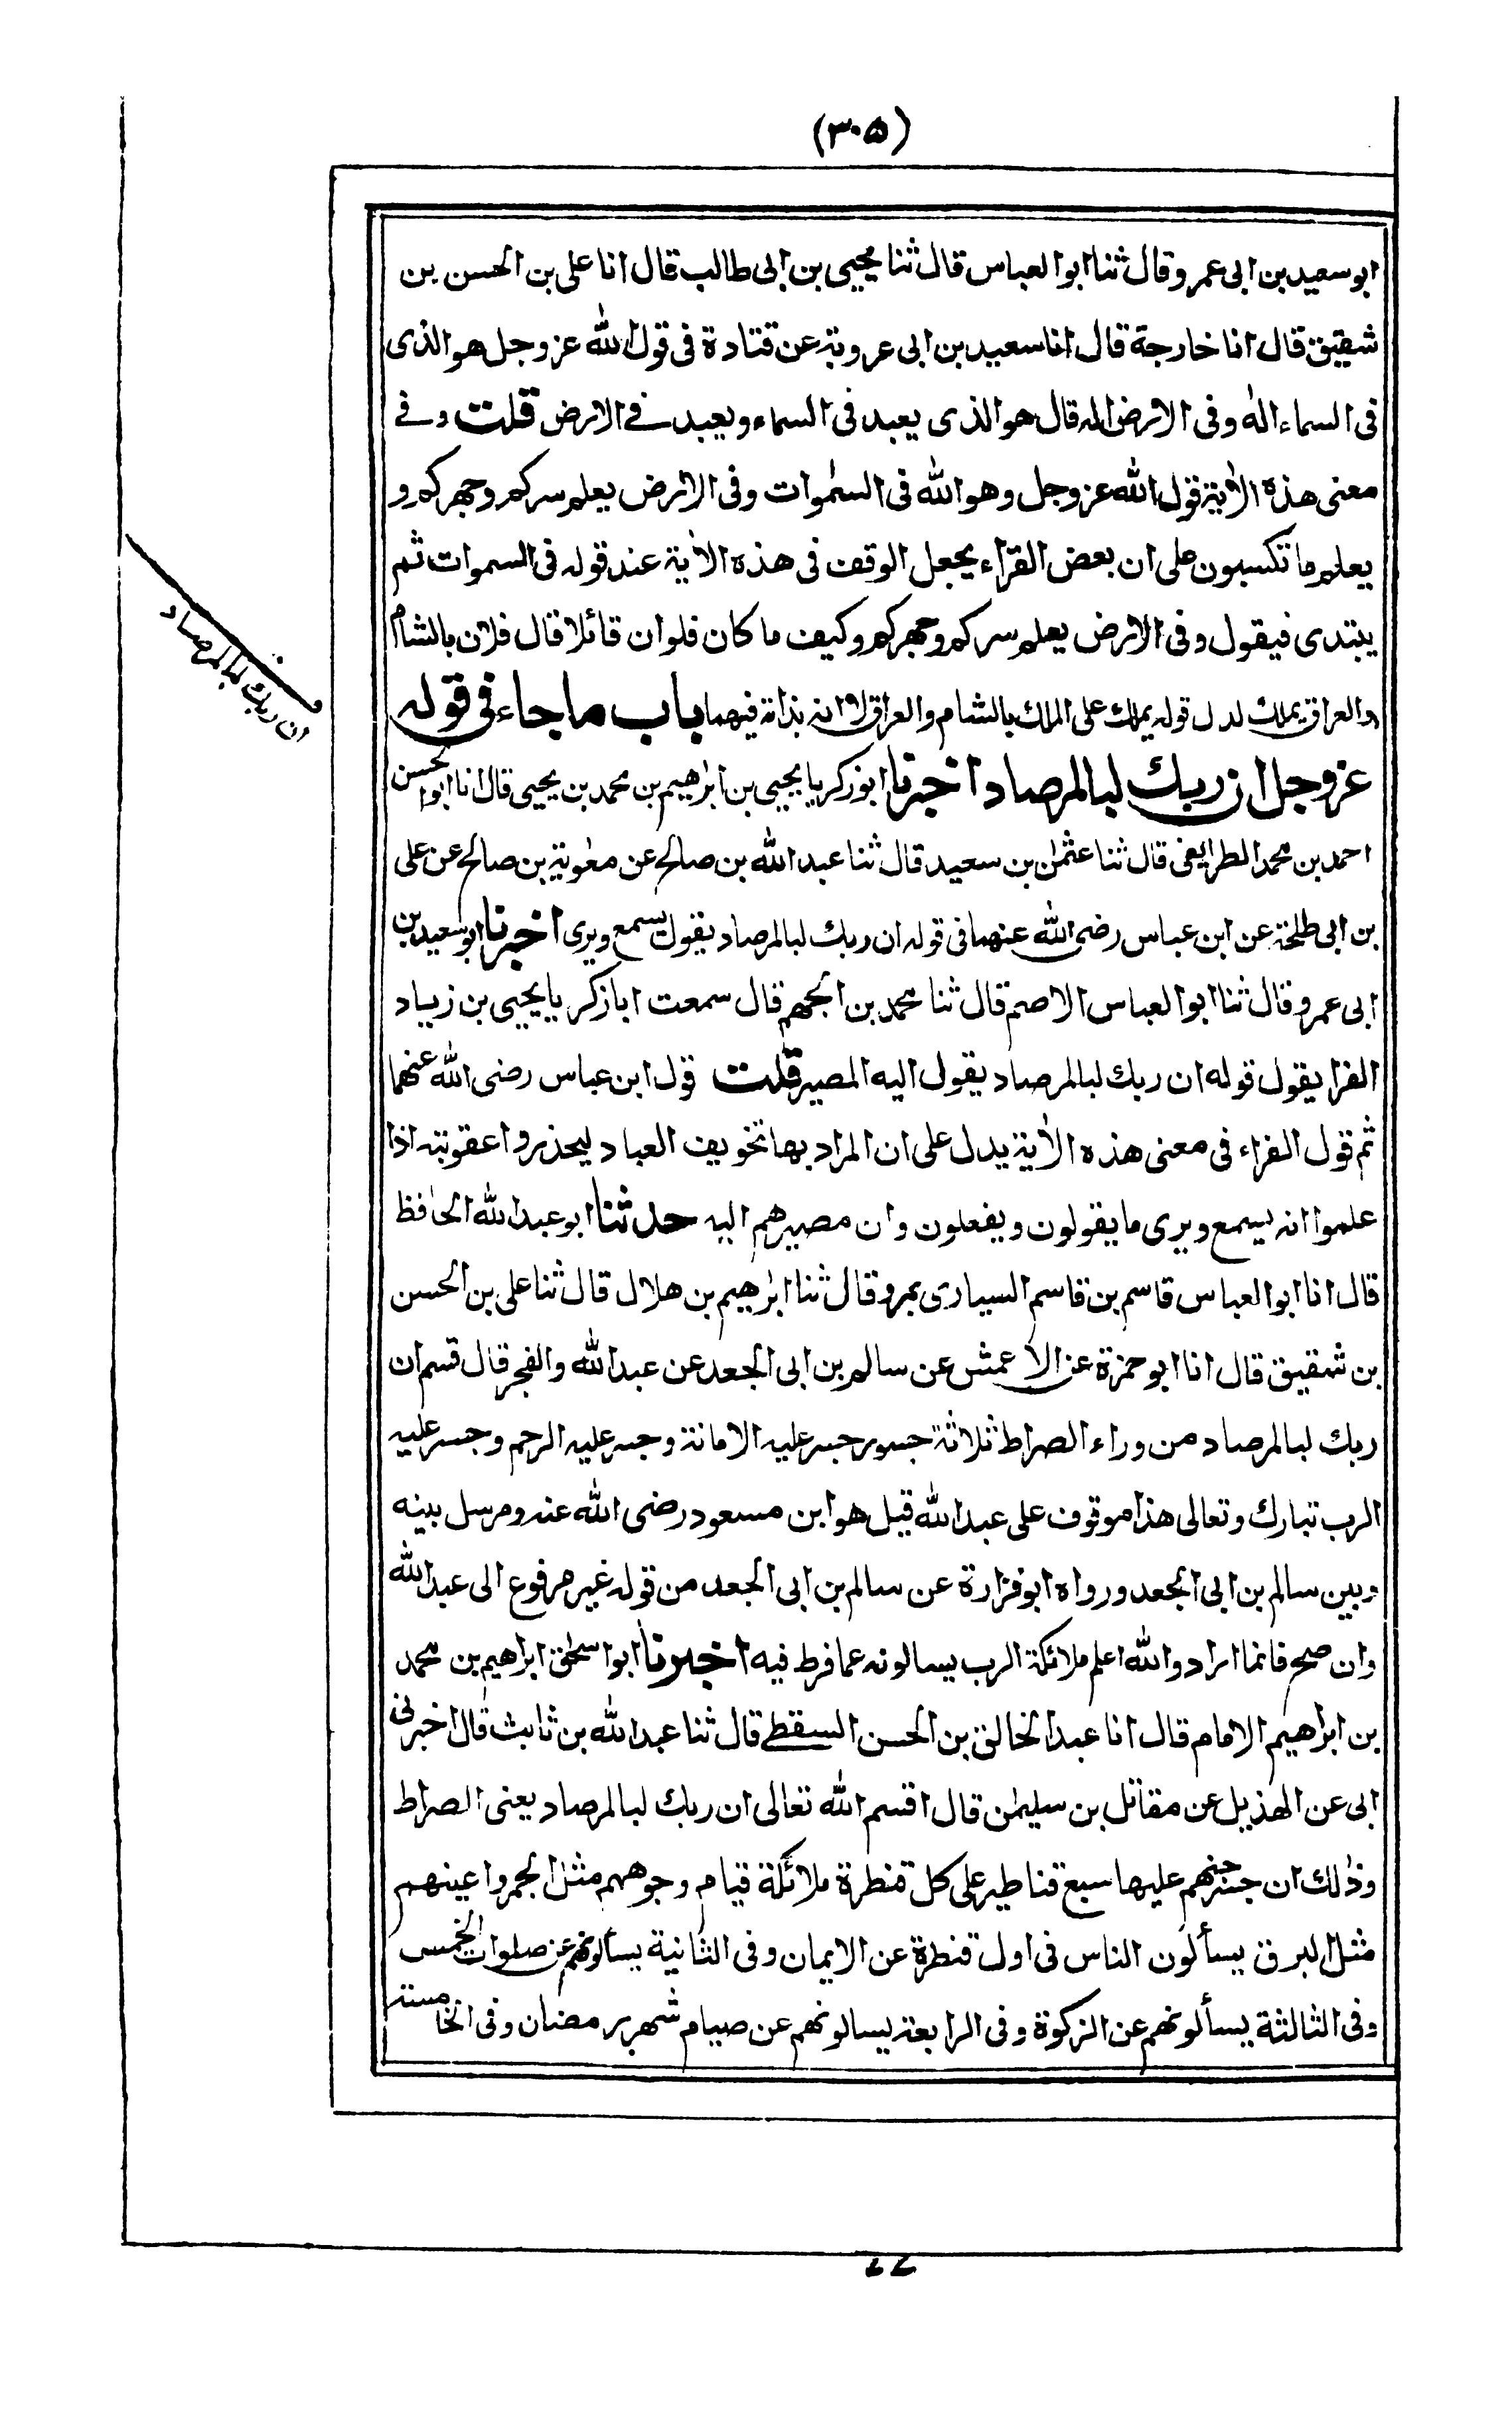 (٣٠٥)
ابو سعيد بن ابى عمرو قال ثنا ابو العباس قال ثنا يحيى بن ابى طالب قال انا على بن الحسن بن
شقيق قال انا خارجة قال انا سعيد بن ابى عروبة عن قتادة فى قول الله عز وجل هو الذى
فى السماء اله وفى الارض اله قال هو الذى يعبد فى السماء ويعبد فى الارض قلت وفى
معنى هذه الاٰية قول الله عز وجل وهو الله فى السمٰوات وفى الارض يعلم سركم وجهركم و
يعلم ما تكسبون على ان بعض القراء يجعل الوقف فى هذه الاٰية عند قوله فى السموات ثم
يبتدى فيقول وفى الارض يعلم سركم وجهركم وكيف ما كان فلو ان قائلا قال فلان بالشام
والعراق يملك لدل قوله يملك على الملك بالشام والعراق لا انه بذاته فيهما باب ما جاء فى قوله
عز وجل ان ربك لبالمرصاد اخبرنا ابو زكريا يحيى بن ابرٰهيم بن محمد بن يحيى قال انا ابو الحسن
احمد بن محمد الطرايفى قال ثنا عثمٰن بن سعيد قال ثنا عبد الله بن صالح عن معٰوية بن صالح عن على
بن ابى طلحة عن ابن عباس رضى الله عنهما فى قوله ان ربك لبالمرصاد يقول يسمع ويرى اخبرنا ابو سعيد بن
ابى عمرو قال ثنا ابو العباس الاصم قال ثنا محمد بن الجهم قال سمعت ابا زكريا يحيى بن زياد
الفرا يقول قوله ان ربك لبالمرصاد يقول اليه المصير قلت قول ابن عباس رضى الله عنهما
ثم قول الفراء فى معنى هذه الاٰية يدل على ان المراد بها تخويف العباد ليحذروا عقوبته اذا
علموا انه يسمع ويرى ما يقولون ويفعلون وان مصيرهم اليه حدثنا ابو عبد الله الحافظ
قال انا ابو العباس قاسم بن قاسم السيارى بمرو قال ثنا ابرٰهيم بن هلال قال ثنا على بن الحسن
بن شقيق قال انا ابو حمزة عن الاعمش عن سالم بن ابى الجعد عن عبد الله والفجر قال قسم ان
ربك لبالمرصاد من وراء الصراط ثلاثة جسور جسر عليه الامانة وجسر عليه الرحم وجسر عليه
الرب تبارك وتعالى هذا موقوف على عبد الله قيل هو ابن مسعود رضى الله عنه ومرسل بينه
وبين سالم بن ابى الجعد ورواه ابو فزارة عن سالم بن ابى الجعد من قوله غير مرفوع الى عبد الله
وان صح فانما اراد والله اعلم ملائكة الرب يسالونه عما فرط فيه اخبرنا ابو اسحٰق ابراهيم بن محمد
بن ابرٰهيم الامام قال انا عبد الخالق بن الحسن السقطى قال ثنا عبد الله بن ثابث قال اخبرنى
ابى عن الهذيل عن مقاتل بن سليمٰن قال اقسم الله تعالى ان ربك لبالمرصاد يعنى الصراط
وذٰلك ان جسر جهنم عليها سبع قناطير على كل قنطرة ملائكة قيام وجوههم مثل الجمر واعينهم
مثل البرق يسألون الناس فى اول قنطرة عن الايمان وفى الثانية يسألونهم عن صلوات الخمس
وفى الثالثة يسألونهم عن الزكوة وفى الرابعة يسالونهم عن صيام شهر رمضان وفى الخامسة
ان ربك لبالمرصاد